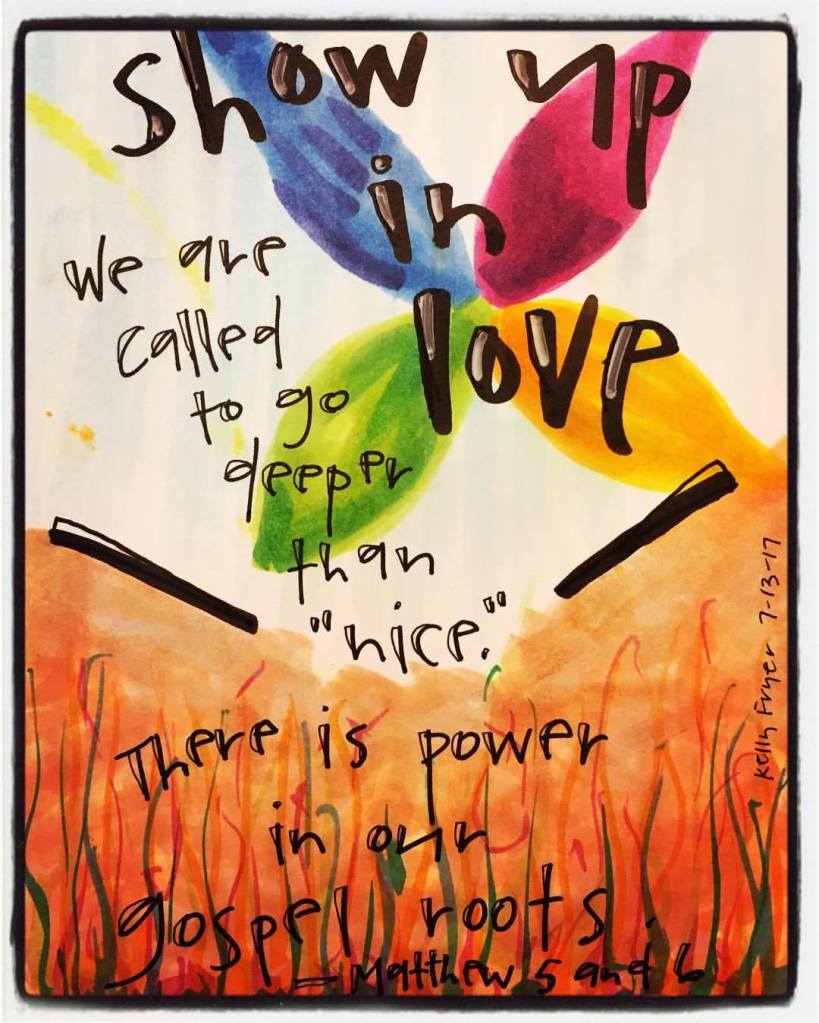 show up
in
love
we are
called
to go
deeper
than
"nice."
There is power
in our
gospel roots.
— Matthew 5 and 6
Kelly Fryer 7-13-17